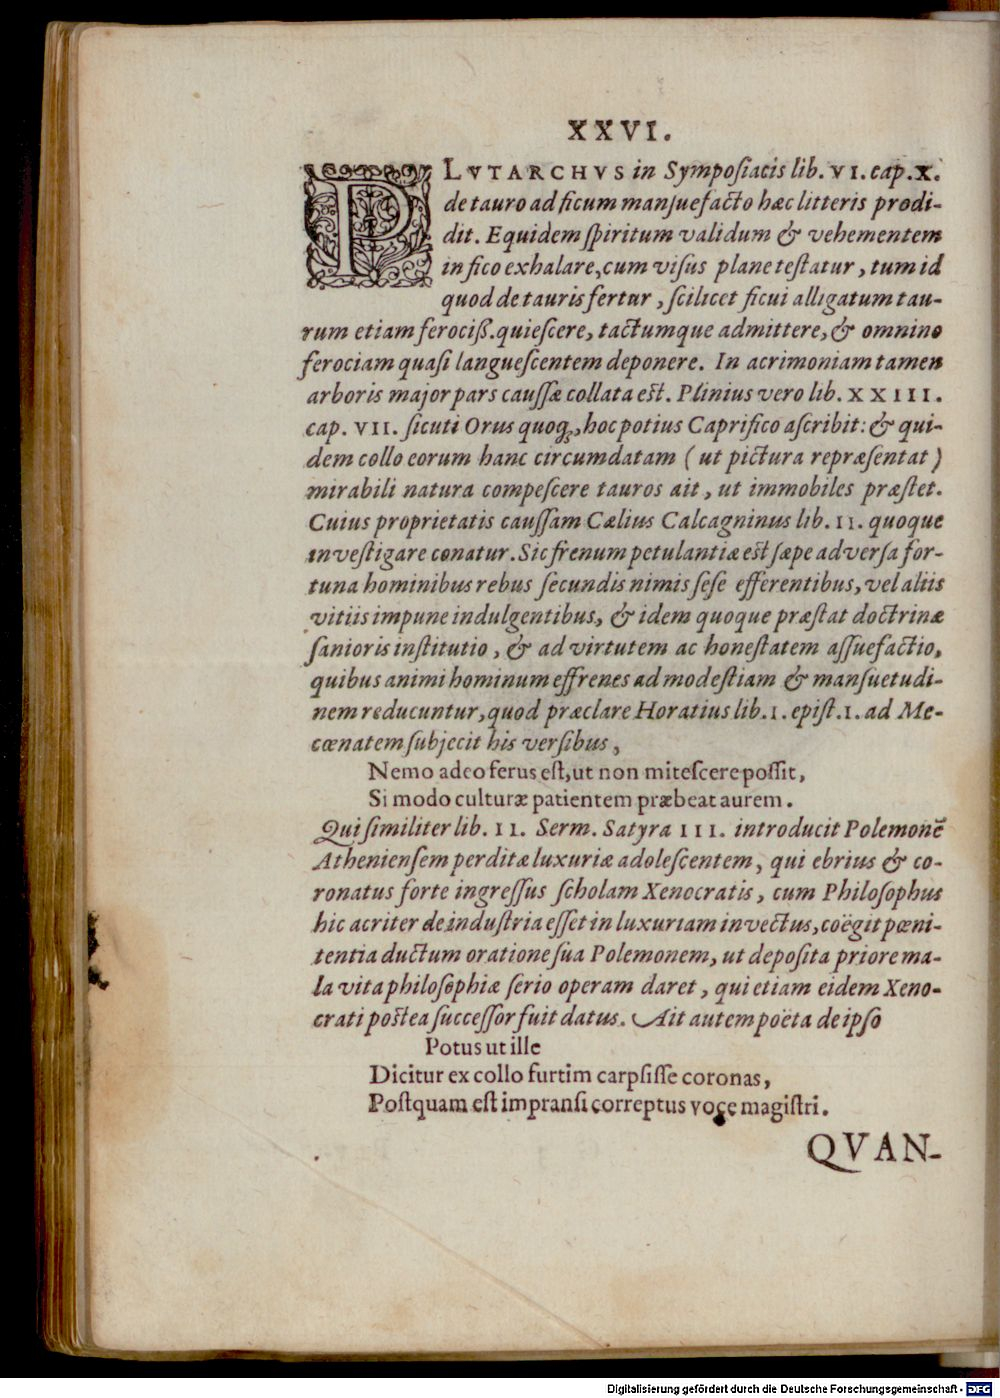 XXVI.
PLVTARCHVS in Symposiacis lib. VI. cap. X.
de tauro ad ficum mansuefacto hæc litteris prodi-
dit. Equidem spiritum validum & vehementem
in fico exhalare, cum visus plane testatur, tum id
quod de tauris fertur, scilicet ficui alligatum tau-
rum etiam ferociß. quiescere, tactumque admittere, & omnino
ferociam quasi languescentem deponere. In acrimoniam tamen
arboris major pars caussæ collata est. Plinius vero lib. XXIII.
cap. VII. sicuti Orus quoq;, hoc potius Caprifico ascribit: & qui-
dem collo eorum hanc circumdatam ( ut pictura repræsentat )
mirabili natura compescere tauros ait, ut immobiles præstet.
Cuius proprietatis caussam Cælius Calcagninus lib. II. quoque
investigare conatur. Sic frenum petulantiæ est sæpe adversa for-
tuna hominibus rebus secundis nimis sese efferentibus, vel aliis
vitiis impune indulgentibus, & idem quoque præstat doctrinæ
sanioris institutio, & ad virtutem ac honestatem assuefactio,
quibus animi hominum effrenes ad modestiam & mansuetudi-
nem reducuntur, quod præclare Horatius lib. I. epist. I. ad Me-
cœnatem subjecit his versibus,
Nemo adeo ferus est, ut non mitescere possit,
Si modo culturæ patientem præbeat aurem.
Qui similiter lib. II. Serm. Satyra III. introducit Polemonē
Atheniensem perditæ luxuriæ adolescentem, qui ebrius & co-
ronatus forte ingressus scholam Xenocratis, cum Philosophus
hic acriter de industria esset in luxuriam invectus, coëgit pœni-
tentia ductum oratione sua Polemonem, ut deposita priore ma-
la vita philosophiæ serio operam daret, qui etiam eidem Xeno-
crati postea successor fuit datus. Ait autem poëta de ipso
Potus ut ille
Dicitur ex collo furtim carpsisse coronas,
Postquam est impransi correptus voce magistri.
QVAN-
Digitalisierung gefördert durch die Deutsche Forschungsgemeinschaft - DFG